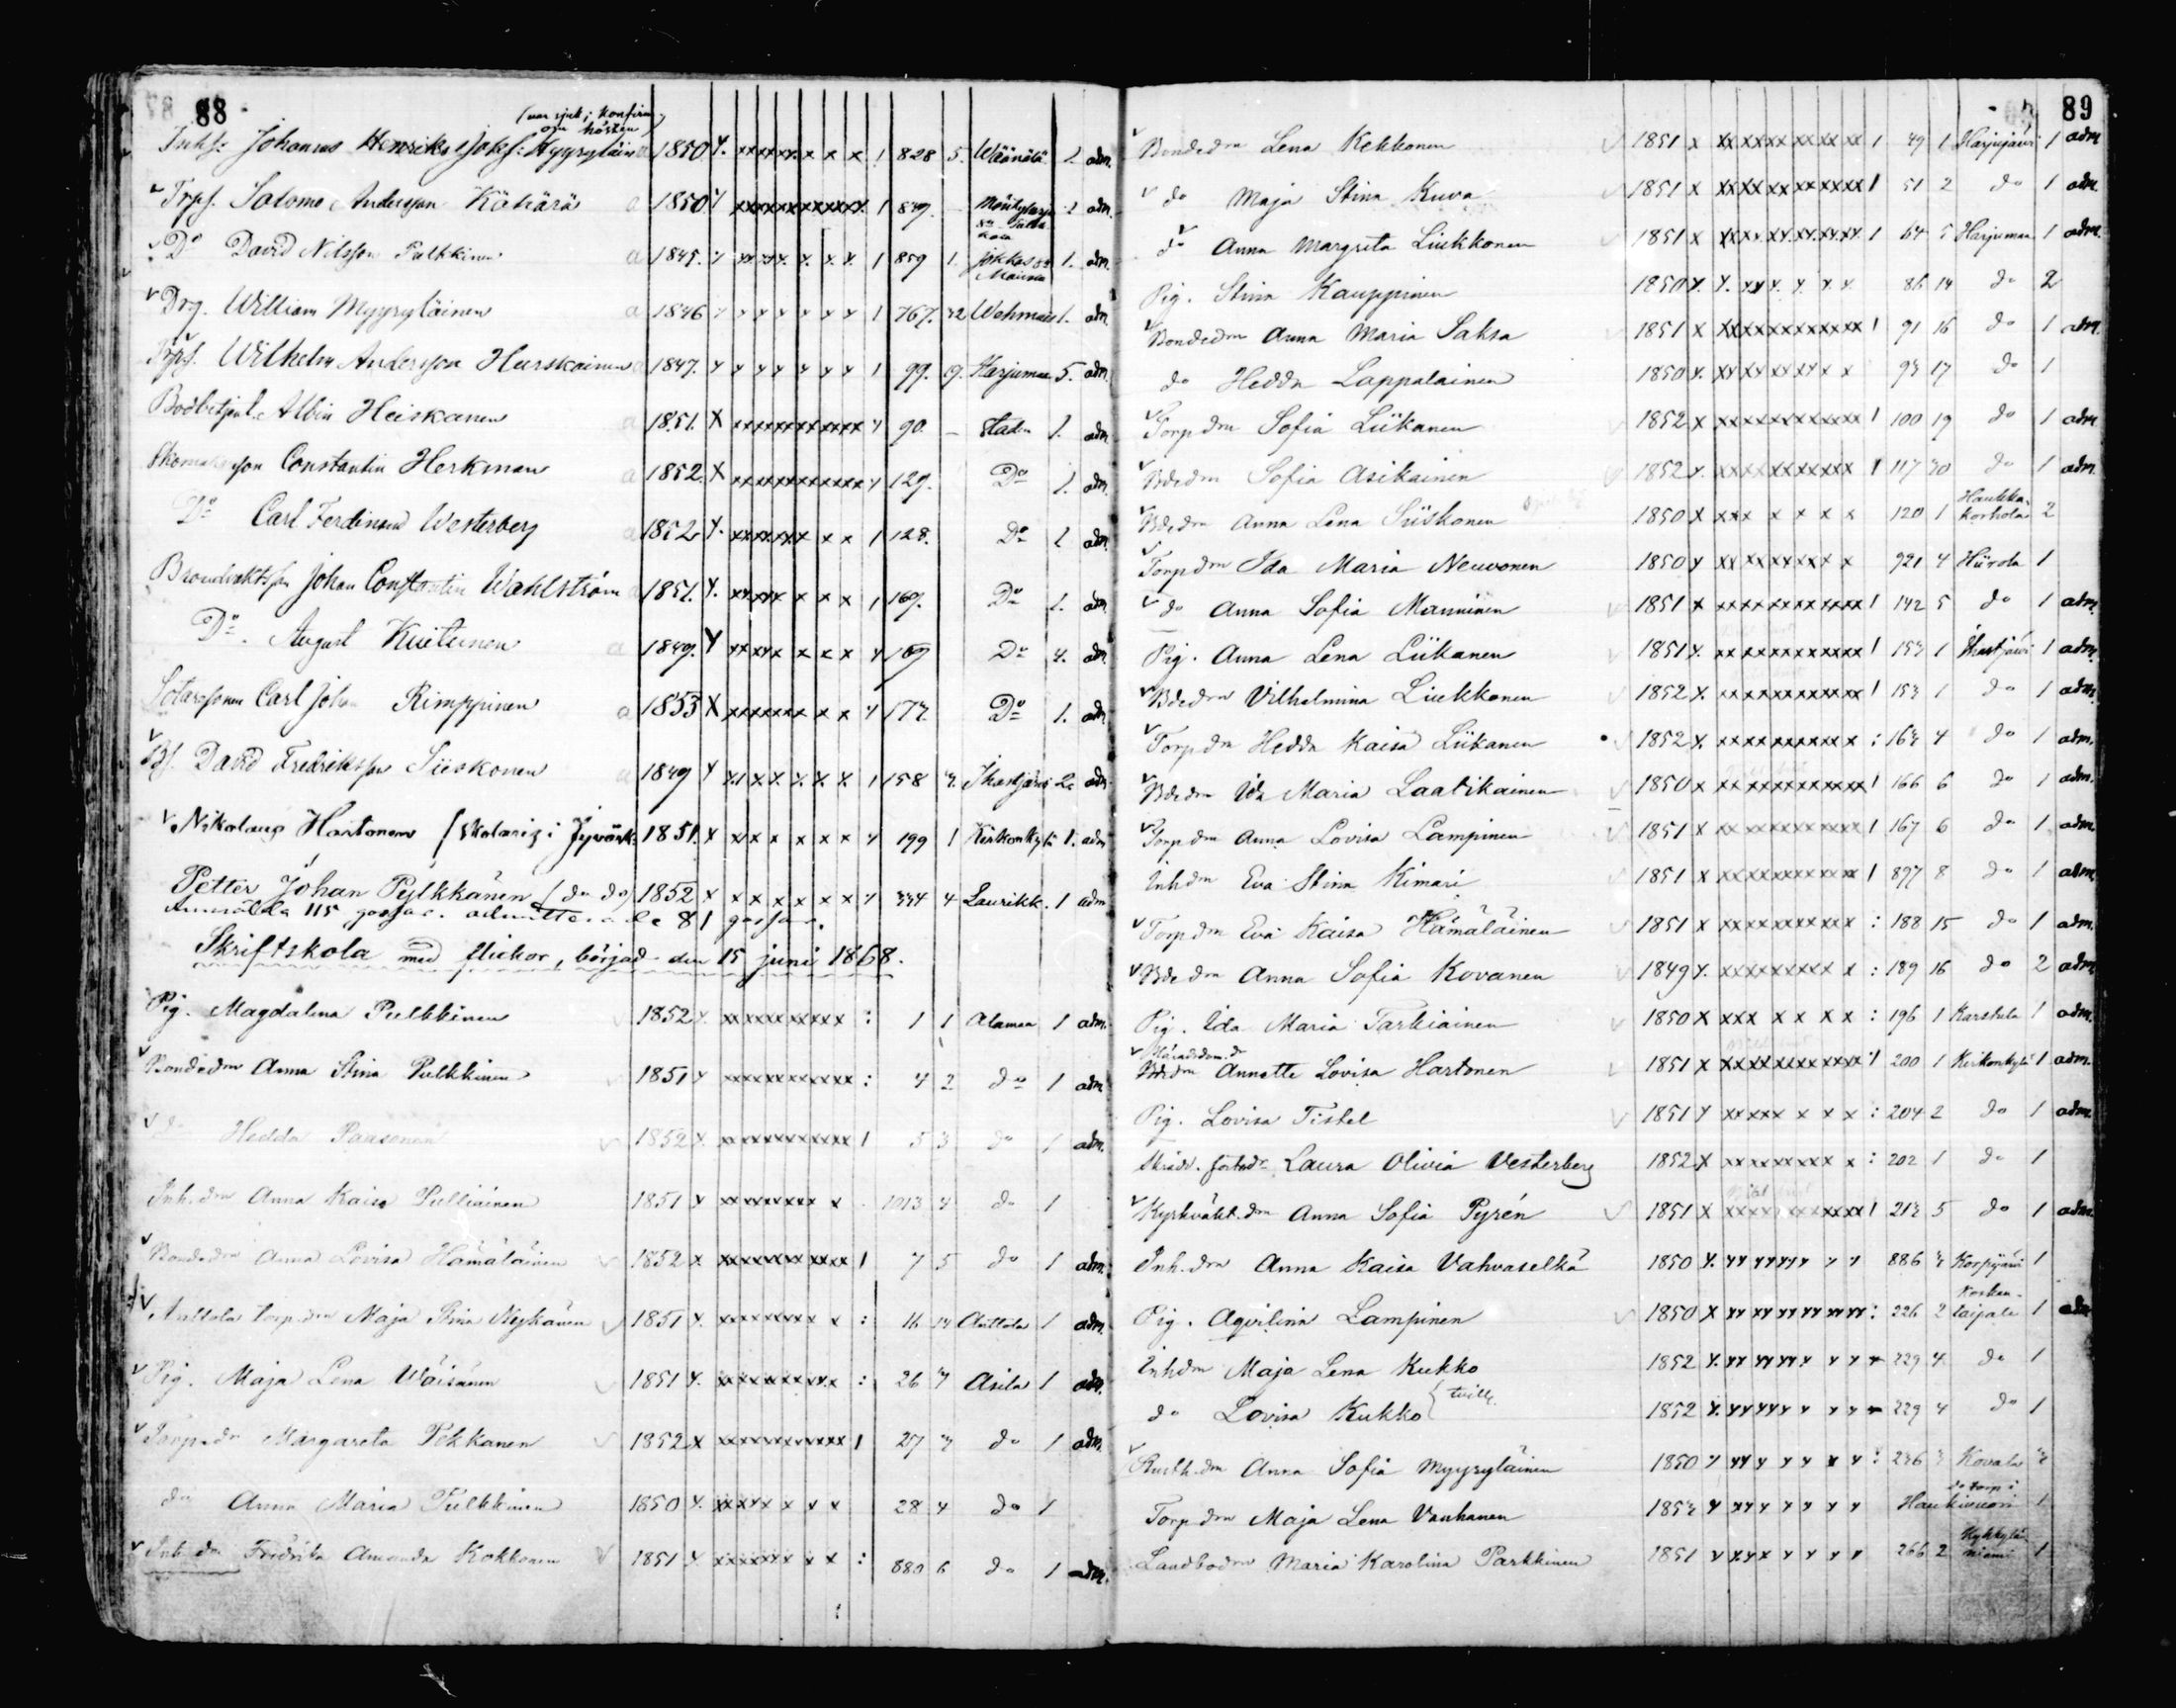 88
(var sjuk i konfirm.
om hösten)
Inhs: Johannes Henriksson Myyryläinen a 1850 x. xxxxxx x x x 1 828 5. Wäänälä 2 adm.
Trps. Salomo Andersson Kähärä a 1850 x xxxxxxxxxxx 1 849. - 2 adm.
Do David Nilsson Pulkkinen a 1845. x xx xx. x. x. x. 1 859 1. Jokkas 1. adm.
Drg. William Myyryläinen a 1846 x x x x x x x 1 767. 32 Wehmais 1. adm.
Trps. Wilhelm Andersson Hurskainen a 1847. x x x x x x x 1 99. 9. Harjumaa 5. adm.
Albin Heiskanen a 1851. X xxxxxxxxxxx x 90. - Stadn 1. adm.
Constantin Herkman a 1852. X xxxxxxxxxxx x 129. Do 1. adm.
Do Carl Ferdinand Westerberg a 1852 x. xxxxxx x x 1 128. Do 1 adm.
Johan Constantin Wahlström a 1851. x. xxxxx x x x 1 169. Do 1. adm.
Do. August Kuitunen a 1849. x xxxxx x x x x 169 Do 4. adm.
Carl Johan Rimppinen a 1853 X xxxxxxx x x x 177. Do 1. adm.
Bs. David Fredriksson Siiskonen a 1849 x xx x x x x x 1 158 3. Ihastjärvi 2 adm.
Nikolaus Hartonen (skolarig i Jyväsk. 1851. x x x x x x x x 199 1 Kirkonkylä 1. adm.
Petter Johan Pylkkänen (do do) 1852 x x x x x x x x 334 4 Laurikk. 1 adm
Anmälda 115 gossar. admitterade 81 gossar.
Skriftskola med flickor, börjad den 15 juni 1868.
Pig. Magdalena Pulkkinen 1852 x. xx xxxxxxxx : 1 1 Alamaa 1 adm.
Bondedn Anna Stina Pulkkinen 1851 x xxxxxxxxxxx : 4 2 do 1 adm.
do Hedda Paasonen 1852 x. xxxxxxxxxxx 1 5 3 do 1 adm.
Inh. dn Anna Kaisa Pulliainen 1851 x xxxxxxxxx x 1013 4 do 1
Bondedn Anna Lovisa Hämäläinen 1852 x xxxxxxxxxxx 1 7 5 do 1 adm.
Anttola torp. dn Maja Stina Nykänen 1851 x. xxxxxxxx x : 16 14 Anttola 1 adm.
Pig. Maja Lena Wäisänen 1851 x. xxxxxxxxx : 26 3 Asila 1 adm.
Torp. dn Margareta Pekkanen 1852 x xxxxxxxxxxx 1 27 3 do 1 adm.
do Anna Maria Pulkkinen 1850 x. xxxxx x x x 28 4 do 1
Inh dn Fredrika Amanda Kokkonen 1851 x xxxxxx x x : 880 6 do 1 adm.
89
Bondedn Lena Kekkonen 1851 x xx xxxxxxxxx 1 49 1 Harjujärvi 1 adm
do Maja Stina Kuva 1851 x xxxxxxxxxxx 1 51 2 do 1 adm.
do Anna Margreta Liukkonen 1851 x xxxxxxxxxxx 1 64 5 Harjumaa 1 adm.
Pig. Stina Kauppinen 1850 x. x. xx x. x. x. x. 86 14 do 2
Bondedn Anna Maria Saksa 1851 x xxxxxxxxxxx 1 91 16 do 1 adm.
do Hedda Lappalainen 1850 x. xx xxxxxx x x 93 17 do 1
Torp dn Sofia Liikanen 1852 x xxxxxxxxxxx 1 100 19 do 1 adm
Bdedn Sofia Asikainen 1852 x. xxxxxxxxxxx 1 117 30 do 1 adm.
Bdedn Anna Lena Siiskonen 1850 x xxx x x x x 120 1 Haukka-
korhola 2
Torp dn Ida Maria Neuvonen 1850 x xx xxxxxxx x 921 4 Hiirola 1
do Anna Sofia Manninen 1851 x xxxxxxxxxxx 1 142 5 do 1 adm.
Pig. Anna Lena Liikanen 1851 x. xxxxxxxxxxx 1 153 1 Ihastjärvi 1 adm.
Bdedn Vilhelmina Liukkonen 1852 x. xxxxxxxxxxx 1 153 1 do 1 adm.
Torp dn Hedda Kaisa Liikanen 1852 x. xxxxxxxxxx x : 163 4 do 1 adm.
Bdedn Ida Maria Laatikainen 1850 x xxxxxxxxxxx 1 166 6 do 1 adm.
Torp dn Anna Lovisa Lampinen 1851 x xxxxxxxxxxx 1 167 6 do 1 adm.
Inhdn Eva Stina Kimari 1851 x xxxxxxxxxxx 1 897 8 do 1 adm.
Torp dn Eva Kaisa Hämäläinen 1851 x xxxxxxxxx x : 188 15 do 1 adm.
Bdedn Anna Sofia Kovanen 1849 x. xxxxxxxxx x : 189 16 do 2 adm
Pig. Ida Maria Tarkiainen 1850 x xxx x x x x : 196 1 Karstula 1 adm.
Bdedn Annette Lovisa Hartonen 1851 x xxxxxxxxxxx 1 200 1 Kirkonkylä 1 adm.
Pig. Lovisa Tistel 1851 x xxxxx x x x : 204 2 do 1 adm.
Laura Olivia Vesterberg 1852 x xxxxxxxx x : 202 1 do 1
Kyrkväkt. dn Anna Sofia Pyrén 1851 x xxxxxxxxxxx 1 213 5 do 1 adm.
Inh. dn Anna Kaisa Vahvaselkä 1850 x. xxxxxxx x x 886 3 Korpijärvi 1
Pig. Aqvilina Lampinen 1850 x xx xx xxxxxxx : 226 2 Kosken-
taipale 1 adm
Inhdn Maja Lena Kukko 1852 x. xx xxxxx x x x 229 4 do 1
do Lovisa Kukko } tvill. 1852 x. xxxxxx x x x 229 4 do 1
Rusth. dn Anna Sofia Myyryläinen 1850 x xx x x x x x : 236 3 Kovala 2
Torp dn Maja Lena Vanhanen 1853 x xxx x x x x Haukivuori 1
Landbodn Maria Karolina Parkkinen 1851 x xxx x x x x 266 2 Kykkylän
niemi 1